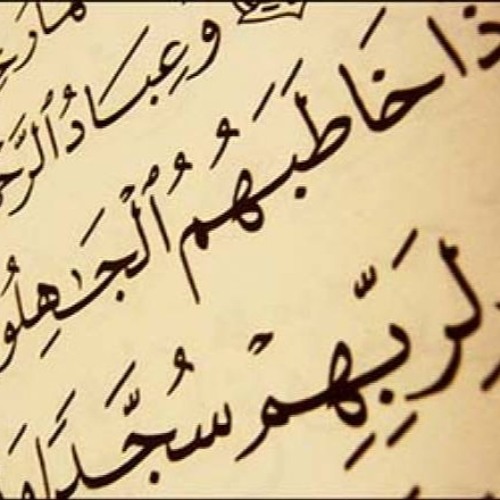 وَعِبَادُ ٱلرَّحْ
ذَا خَاطَبَهُمُ ٱلْجَٰهِلُو
لِرَبِّهِمْ سُجَّدًا وَ